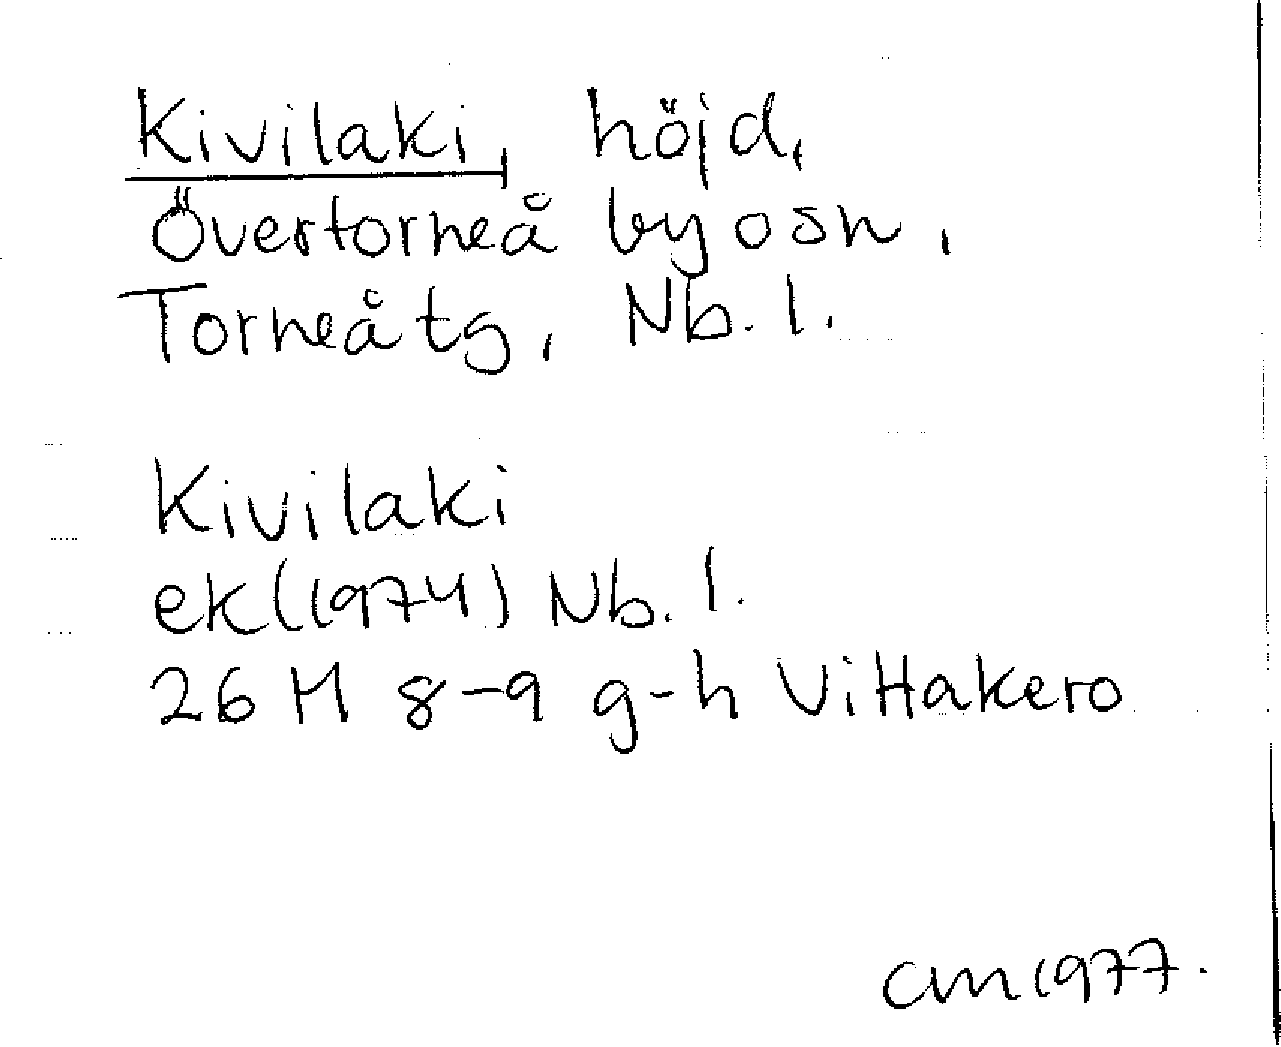 Kivilaki, höjd,
Övertorneå by o sn,
Torneå tg, Nb. l.
Kivilaki
ek (1974) Nb. l.
26 M 8-9 g-h Vittakero
CM 1977.